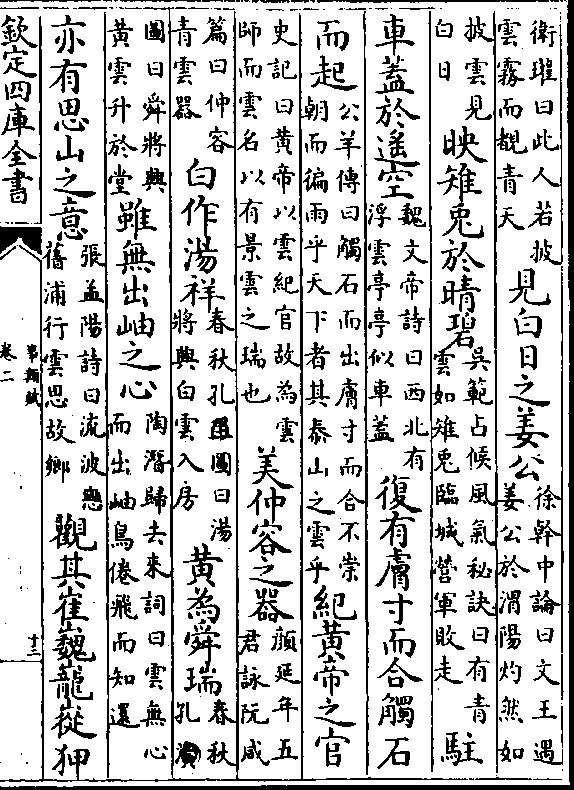 衛瓘曰此人若披
雲霧而覩青天
見白日之姜公
徐幹中論曰文王遇
姜公於渭陽灼然如
披雲見
白日
映雉兎於晴碧
吳範占候風氣秘訣曰有青
雲如雉兎臨城營軍敗走
駐
車蓋於遙空
魏文帝詩曰西北有
浮雲亭亭似車蓋
復有膚寸而合觸石
而起
公羊傳曰觸石而出膚寸而合不崇
朝而徧雨乎天下者其泰山之雲乎
紀黃帝之官
史記曰黃帝以雲紀官故為雲
師而雲名以有景雲之瑞也
美仲容之器
顔延年五
君詠阮咸
篇曰仲容
青雲器
白作湯祥
春秋孔圖曰湯
將興白雲入房
黃為舜瑞
春秋
孔
圖曰舜將興
黃雲升於堂
雖無出岫之心
陶潛歸去來詞曰雲無心
而出岫鳥倦飛而知還
亦有思山之意
張孟陽詩曰流波戀
舊浦行雲思故鄉
觀其崔巍巃嵸狎
欽定四庫全書
事類賦
卷二
十三